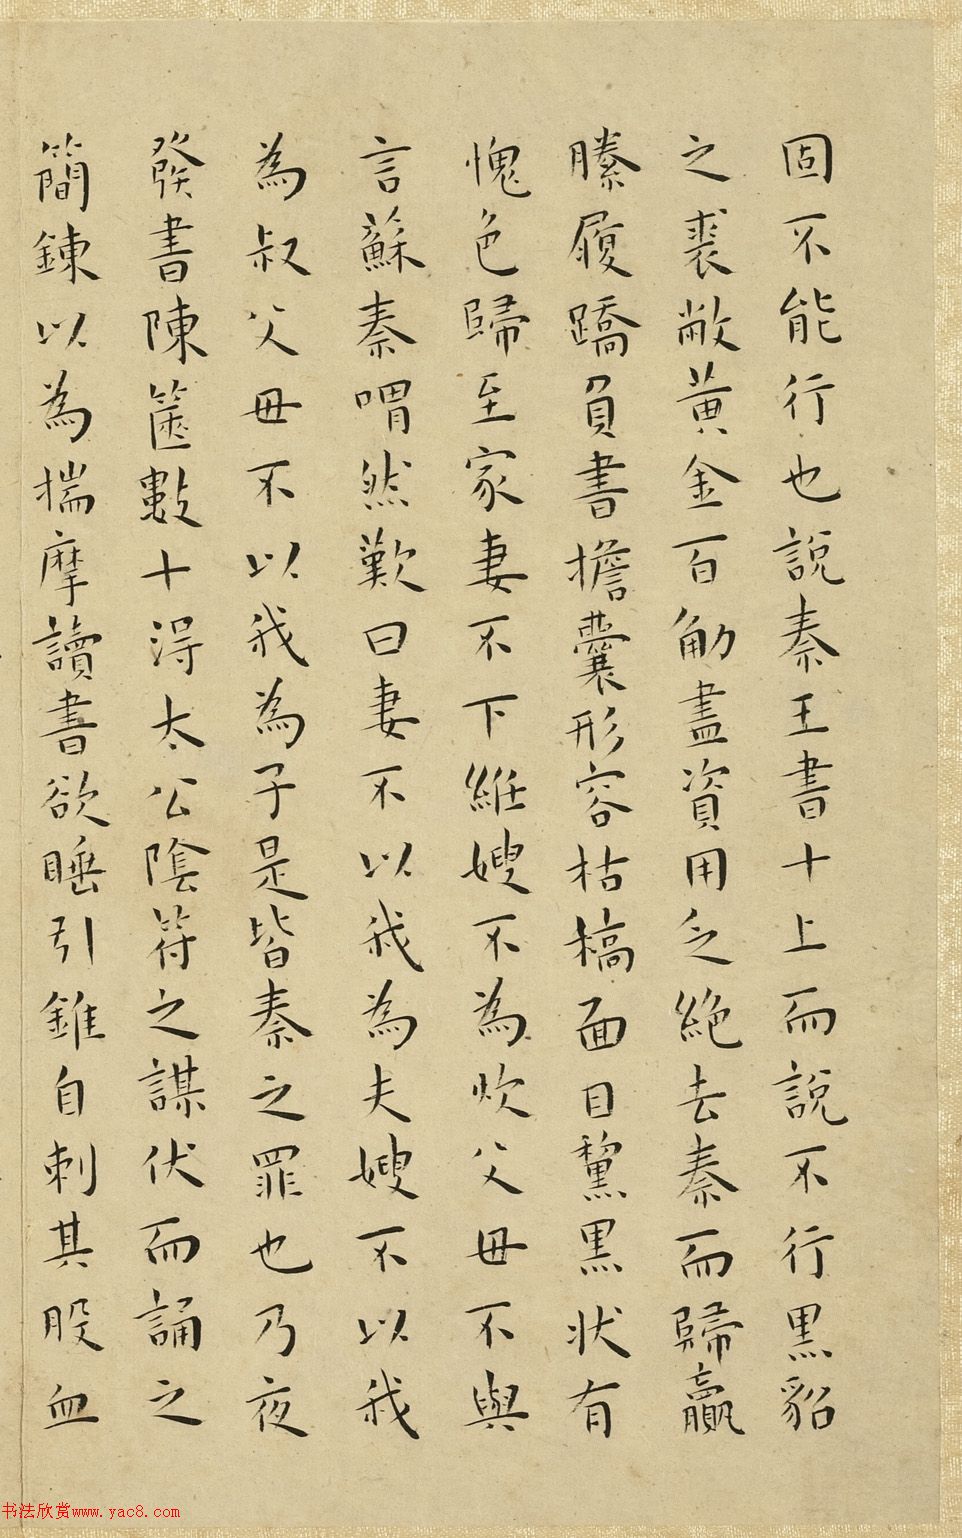 固不能行也說秦王書十上而說不行黑貂
之裘敝黃金百觔盡資用乏絶去秦而歸羸
縢履蹻負書擔囊形容枯槁面目黧黑狀有
愧色歸至家妻不下絍嫂不為炊父母不與
言蘇秦喟然歎曰妻不以我為夫嫂不以我
為叔父母不以我為子是皆秦之罪也乃夜
發書陳篋數十得太公陰符之謀伏而誦之
簡鍊以為揣摩讀書欲睡引錐自刺其股血
书法欣赏www.yac8.com